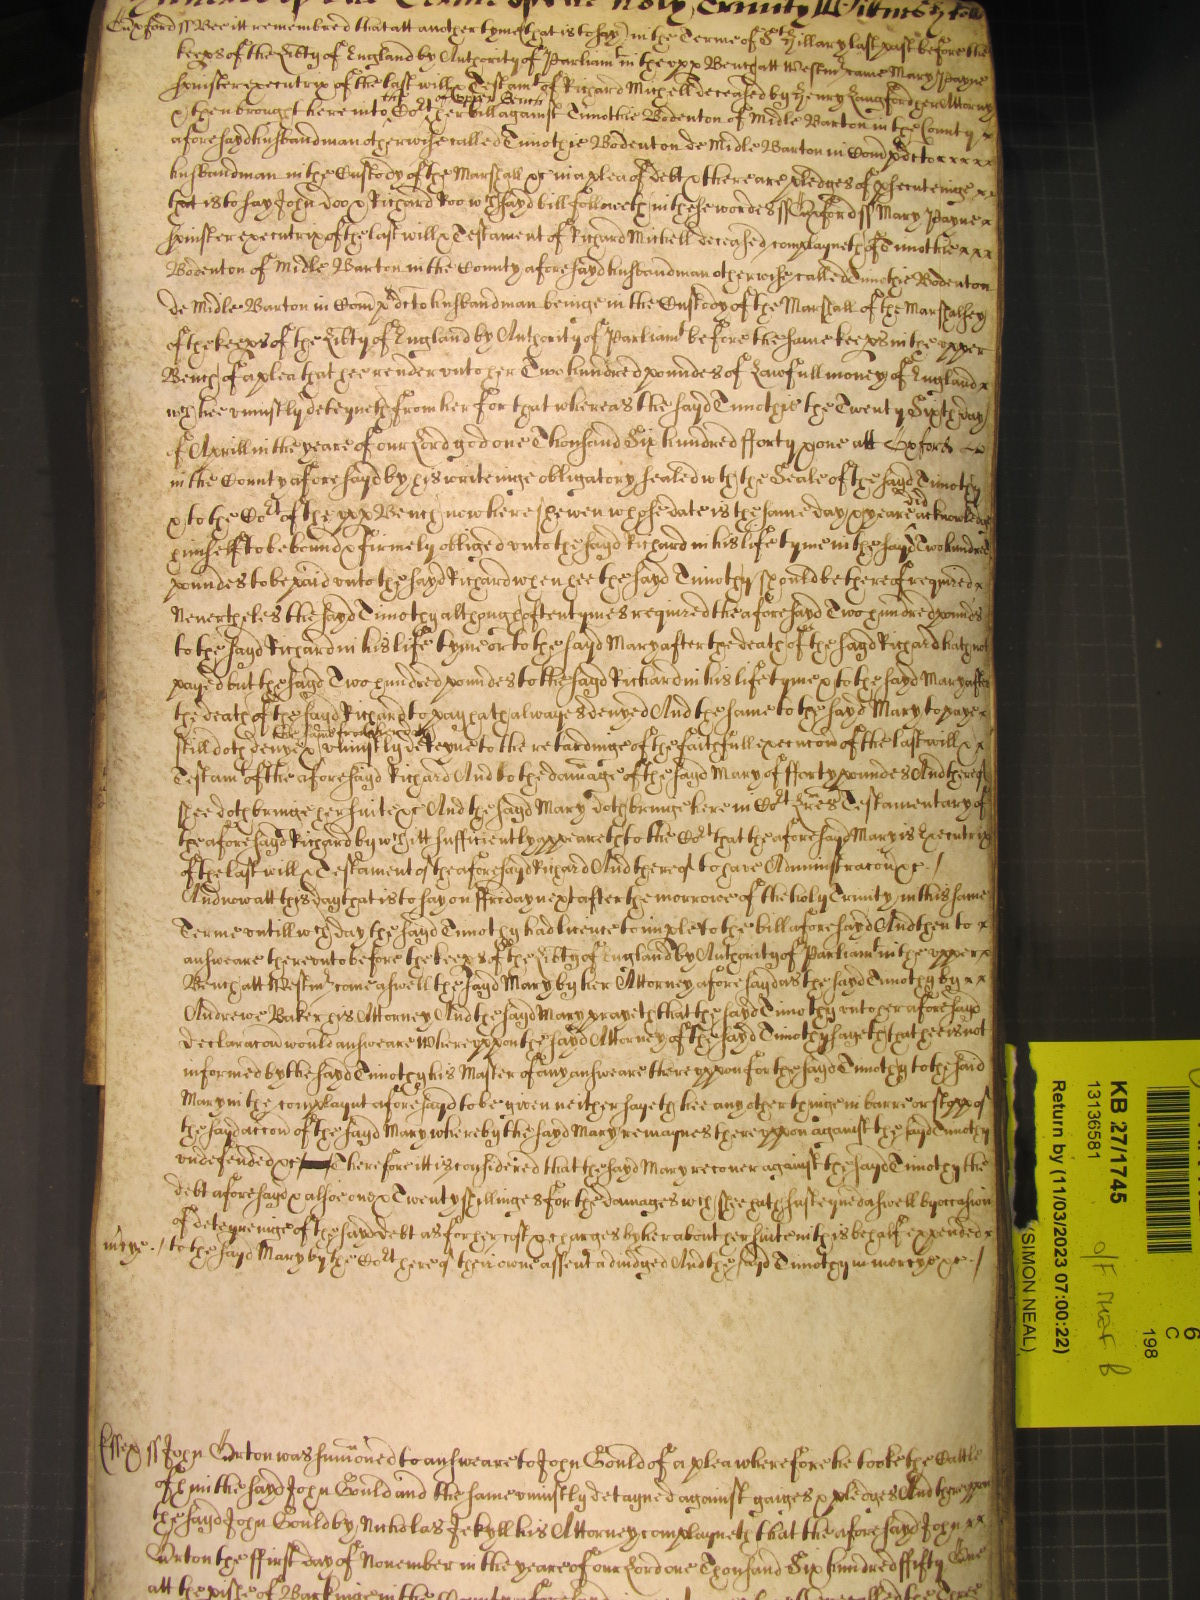 of the Terme of the holy Trinity Witnes
Oxford ss Bee itt remembred that att another tyme (that is to say) in the Terme of St Hillary last past before the
keeps of the Libty of England by Authority of Parliamt in the vpp Bench att Westmr came Mary Payne
spinster executrix of the last will & Testamt of Richard Michell deceased by Henry Langford her Attorny
the of Upper Bench
& then brought here into Cort her bill against Timothie Bodenton of Midle Barton in the County
aforesayd husbandman otherwise called Timothie Bodenton de Midle Barton in Com pdcto x x x x
husbandman in the Custody of the Marshall &c in a plea of debt & there are pledges of psecuteinge x x
that is to say John Doo & Richard Roo wch sayd bill followeth in these wordes ss Oxford ss Mary Payne x
spinster executrix of the last will & Testament of Richard Michell deceased complayneth of Timothie x x x
Bodenton of Midle Barton in the County aforesayd husbandman otherwise called Timothie Bodenton
de Midle Barton in Com pdcto husbandman beinge in the Custody of the Marshall of the Marshalsey
of the keeps of the Libty of England by Authority of Parliamt before the same keeps in the vpper
Bench of a plea that hee render vnto her Two hundred poundes of Lawfull money of England x
wch hee vniustly deteyneth from her for that whereas the sayd Timothie the Twenty Sixth day
of Aprill in the yeare of our Lord god one Thousand Six hundred fforty & one att Oxford
in the County aforesayd by his writeinge obligatory sealed wth the Seale of the sayd Timothy
did
& to the Cort of the vpp Bench now here shewen whose date is the same day & yeare acknowledge
himself to be bound & firmely obliged vnto the sayd Richard in his life tyme in the sayd Two hundred
poundes to be paid vnto the sayd Richard when hee the sayd Timothy should be thereof required x
Neverthеles the sayd Timothy although oftentymes required the aforesayd Two hundred poundes
to the sayd Richard in his life tyme or to the sayd Mary after the death of the sayd Richard hath not
payed but the sayd Two hundred poundes to the sayd Richard in his life tyme & to the sayd Mary after
the death of the sayd Richard to pay hath alwayes denyed And the same to the sayd Mary to paye x
the same from her doth
still doth denye & vniustly deteyne to the retardinge of the faithfull execucon of the last will & x
Testamt of the aforesayd Richard And to the damage of the sayd Mary of fforty poundes And thereof
shee doth bringe her suite &c And the sayd Mary doth bringe here in Cort Lres Testamentary of
the aforesayd Richard by wch itt sufficiently appeareth to the Cort that the aforesayd Mary is Executrix
of the last will & Testament of the aforesayd Richard And thereof to have Administracon &c. /
And now att this day that is to say on ffriday next after the morrowe of the holy Trinity in this same
Terme vntill wch day the sayd Timothy had licence to imple to the bill aforesayd And then to x
answeare therevnto before the keeps of the Libty of England by Authority of Parliamt in the vpper x
Bench att Westmr came aswell the sayd Mary by her Attorney aforesayd as the sayd Timothy by x x
Andrewe Baker his Attorney And the sayd Mary prayeth that the sayd Timothy vnto her aforesayd
declaracon would answeare Wherevppon the sayd Attorney of the sayd Timothy sayeth that hee is not
informed by the sayd Timothy his Master of any answeare therevppon for the sayd Timothy to the said
Mary in the complaynt aforesayd to be given neither sayeth hee any other thinge in barre or stopp of
the sayd accon of the sayd Mary whereby the sayd Mary remaynes therevppon against the sayd Timothy
vndefended &c Therefore itt is considered that the sayd Mary recouer against the sayd Timothy the
debt aforesayd & alsoe one & Twenty shillinges for the damages wch shee hath susteyned aswell by occasion
of deteyneinge of the sayd debt as for her cost & charges by her about her suite in this behalf expended x
mcye. / to the sayd Mary by the Cort here of their owne assent adiudged And the sayd Timothy in mercye &c. /
Essex ss John Orton was sumoned to answeare to John Gould of a plea wherefore he tooke the Cattle
of him the sayd John Gould and the same vniustly detayned against gaiges & pledges And therevppon
the sayd John Gould by Nicholas Jekyll his Attorney complayneth that the aforesayd John x x
Orton the ffirst day of November in the yeare of our Lord one Thousand Six hundred ffifty One
att the pishe of Barkinge in the
KB 27/1745
13136581
Return by (11/03/2023 07:00:22)
(SIMON NEAL)
6
C
198